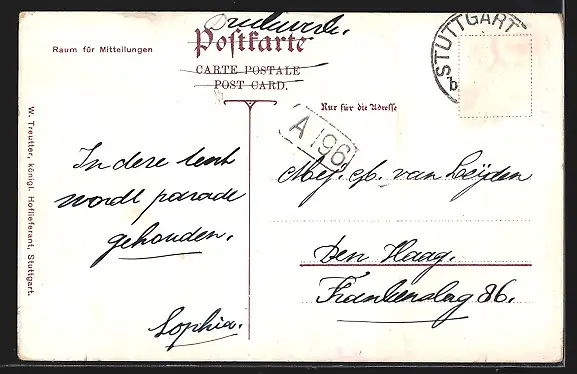 Drukwerk.
Raum für Mitteilungen
Postkarte
CARTE POSTALE
POST CARD.
STUTTGART
b
Nur für die Adresse
A 196
In deze tent
wordt parade
gehouden.
Sophia.
Mej. van Leijden
Den Haag.
Frankenslag 86.
W. Treutter, königl. Hoflieferant, Stuttgart.